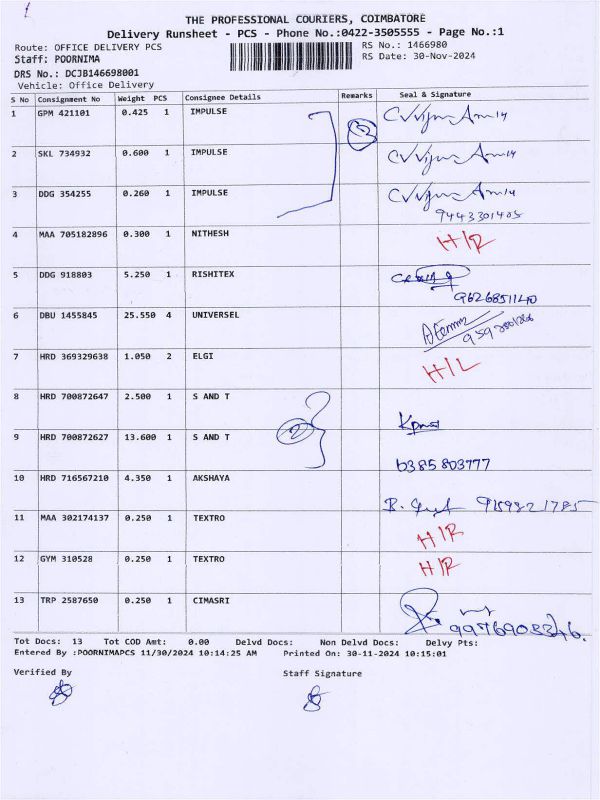 THE PROFESSIONAL COURIERS, COIMBATORE
Delivery Runsheet - PCS - Phone No.:0422-3505555 - Page No.:1
Route: OFFICE DELIVERY PCS RS No.: 1466980
Staff: POORNIMA RS Date: 30-Nov-2024
DRS No.: DCJB146698001
Vehicle: Office Delivery
S No Consignment No Weight PCS Consignee Details Remarks Seal & Signature
1 GPM 421101 0.425 1 IMPULSE
2 SKL 734932 0.600 1 IMPULSE
3 DDG 354255 0.260 1 IMPULSE
9443301405
4 MAA 705182896 0.300 1 NITHESH H/R
5 DDG 918803 5.250 1 RISHITEX
9626851140
6 DBU 1455845 25.550 4 UNIVERSEL
7 HRD 369329638 1.050 2 ELGI H/L
8 HRD 700872647 2.500 1 S AND T
9 HRD 700872627 13.600 1 S AND T
6385803777
10 HRD 716567210 4.350 1 AKSHAYA
11 MAA 302174137 0.250 1 TEXTRO H/R
12 GYM 310528 0.250 1 TEXTRO H/R
13 TRP 2587650 0.250 1 CIMASRI
Tot Docs: 13 Tot COD Amt: 0.00 Delvd Docs: Non Delvd Docs: Delvy Pts:
Entered By :POORNIMAPCS 11/30/2024 10:14:25 AM Printed On: 30-11-2024 10:15:01
Verified By Staff Signature